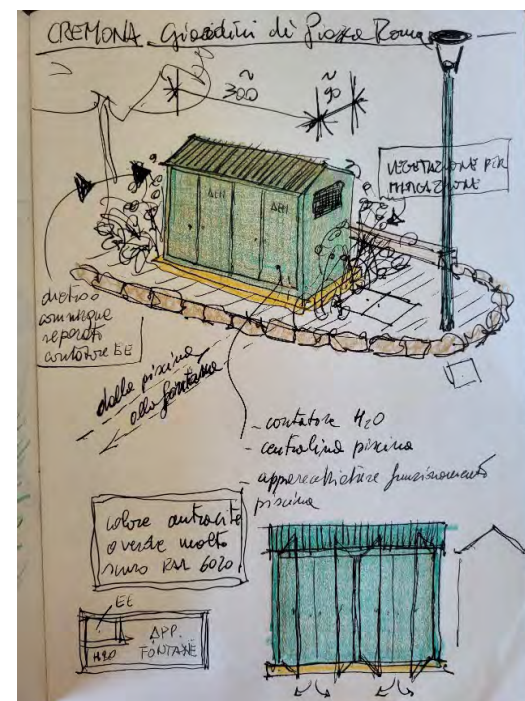 CREMONA Giardini di Piazza Roma
300
90
AEM
AEM
VEGETAZIONE PER
MITIGAZIONE
dietro o
comunque
separato
contatore EE
dalla piscina
alla fontana
- contatore H2O
- centralina piscina
- apparecchiature funzionamento
piscina
colore antracite
o verde molto
scuro RAL 6020
EE
H2O
APP.
FONTANE